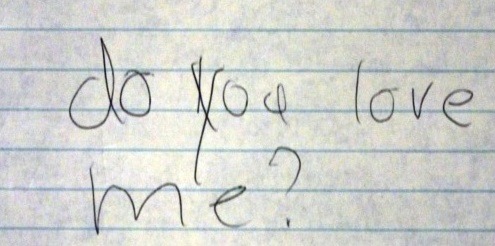 do you love
me?